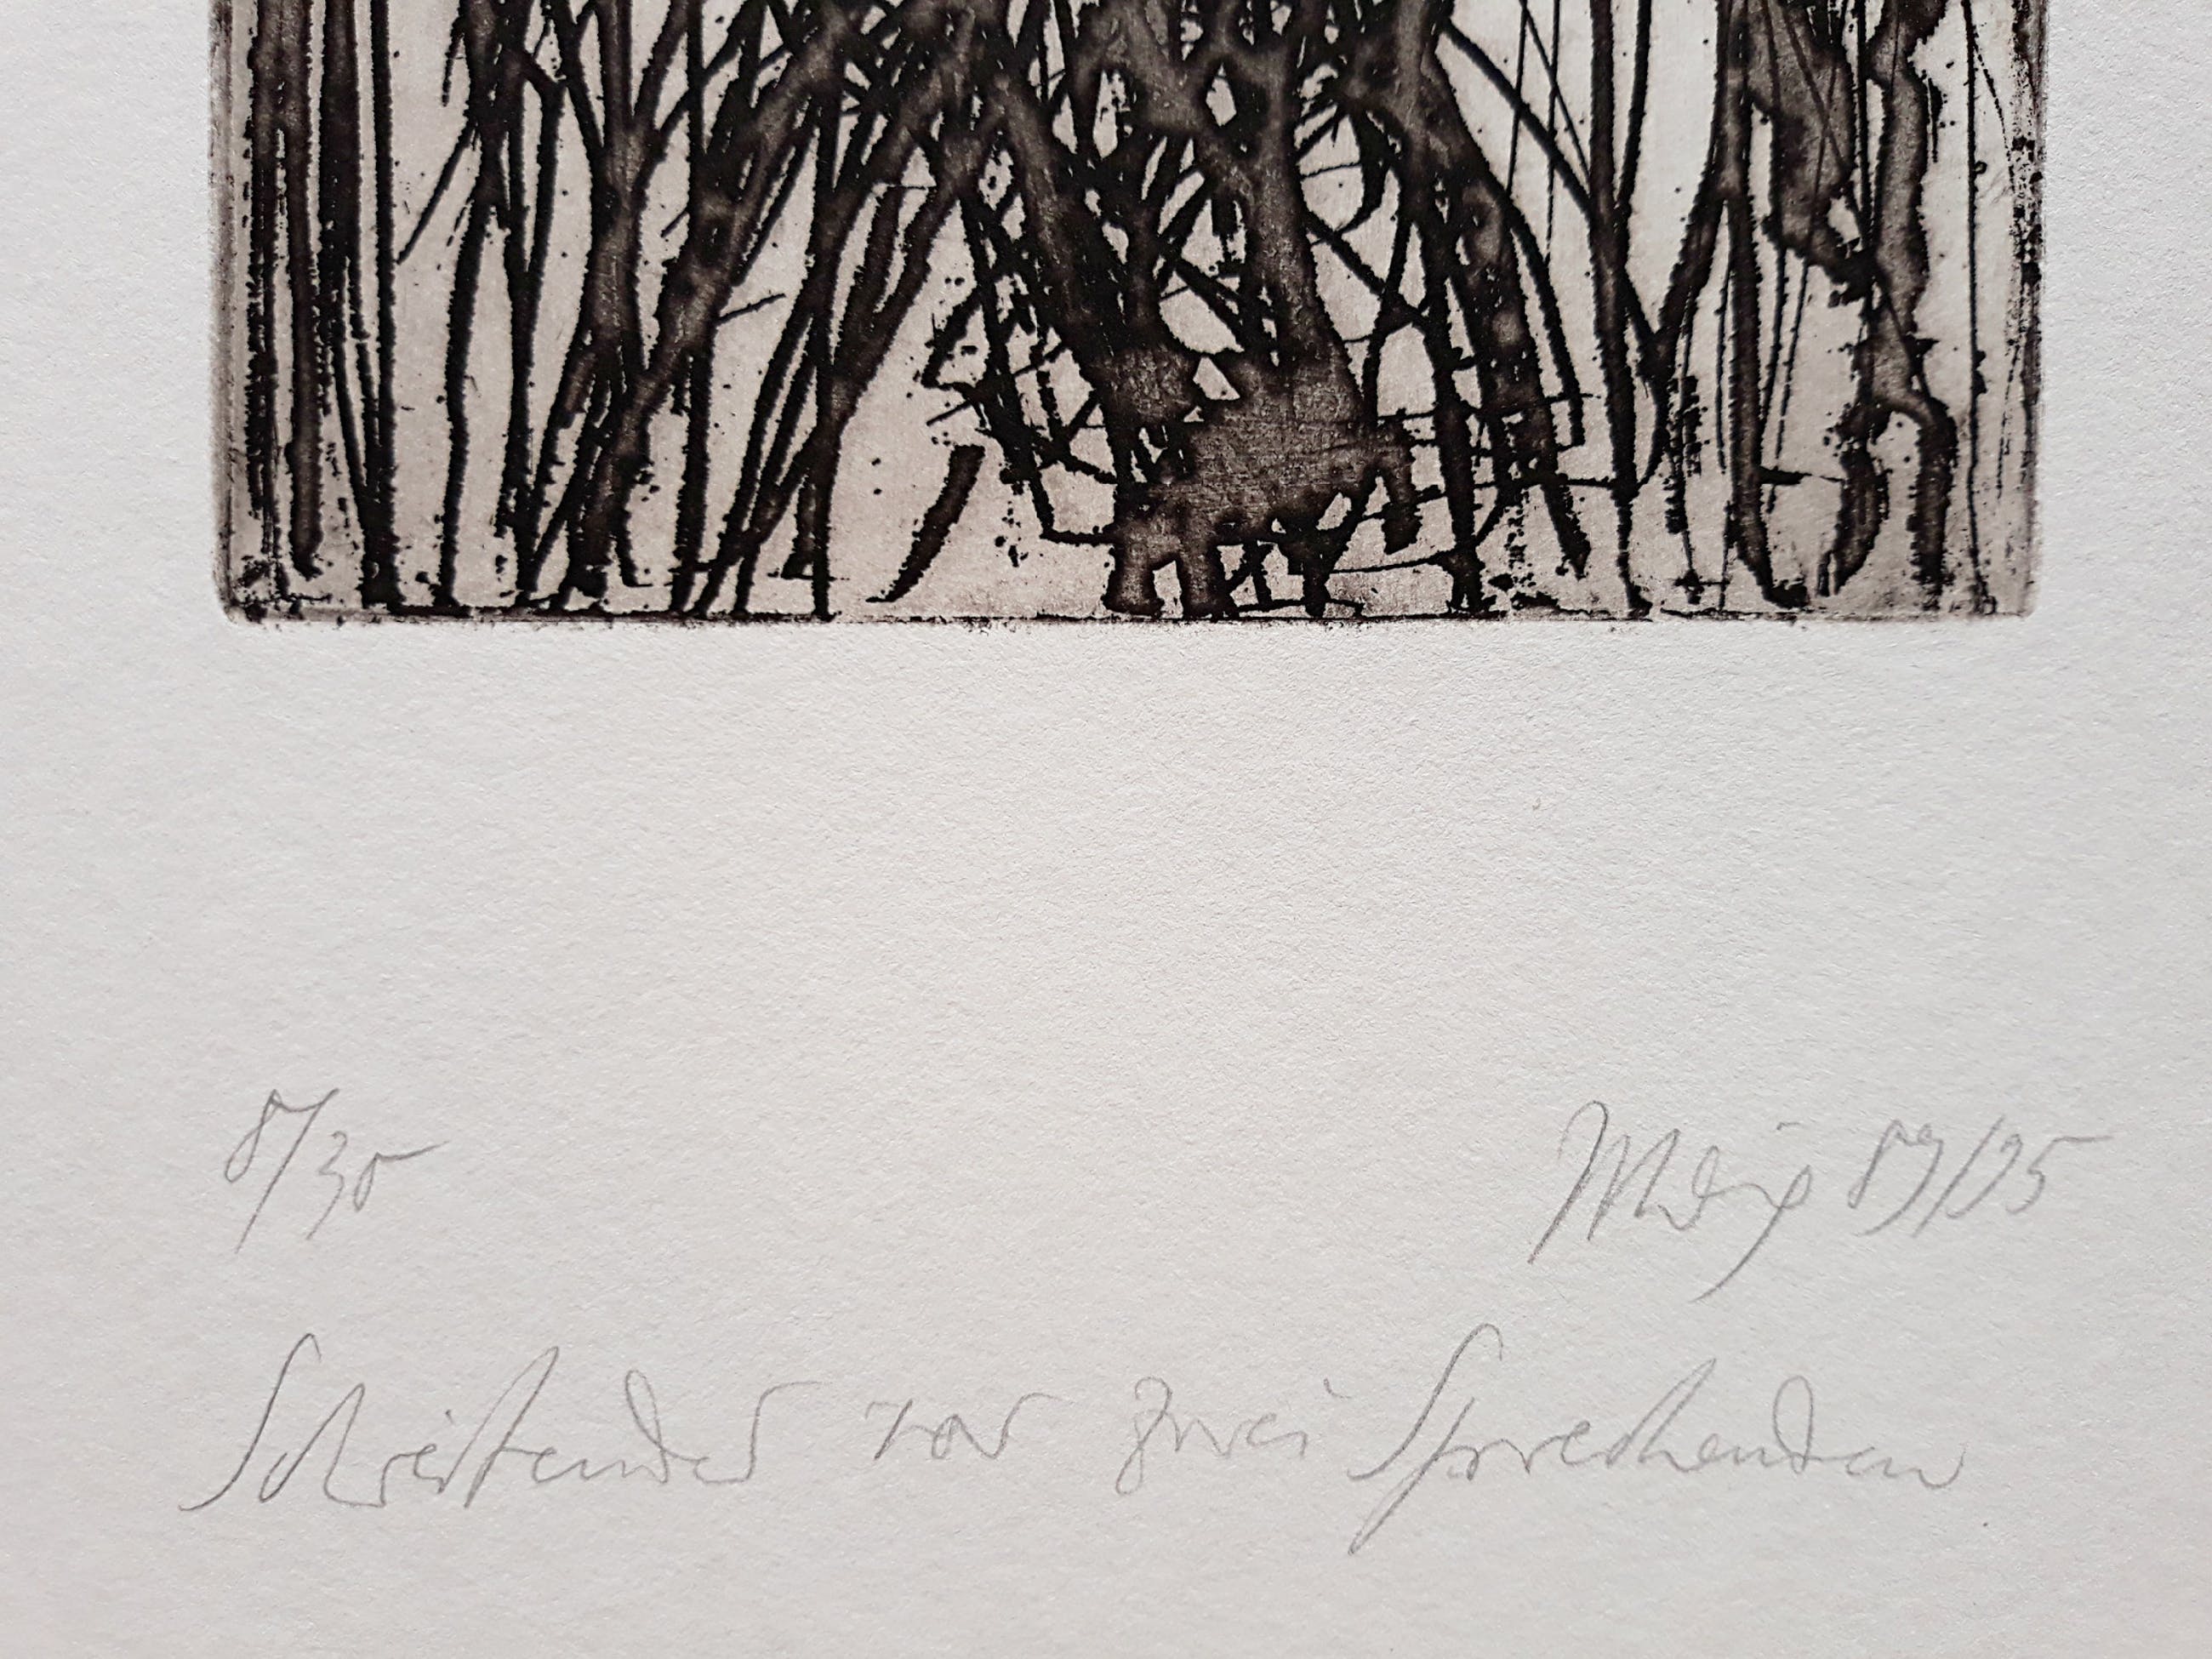 8/30 MUhlig 89/95
Schreitender vor zwei Sprechenden